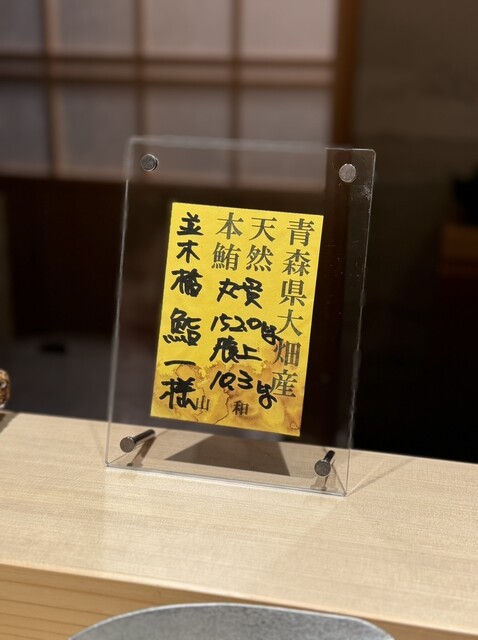 青森県大畑産
天然
本鮪
丸
152.0kg
腹上
10.3kg
山和
並木橋 鮨一様